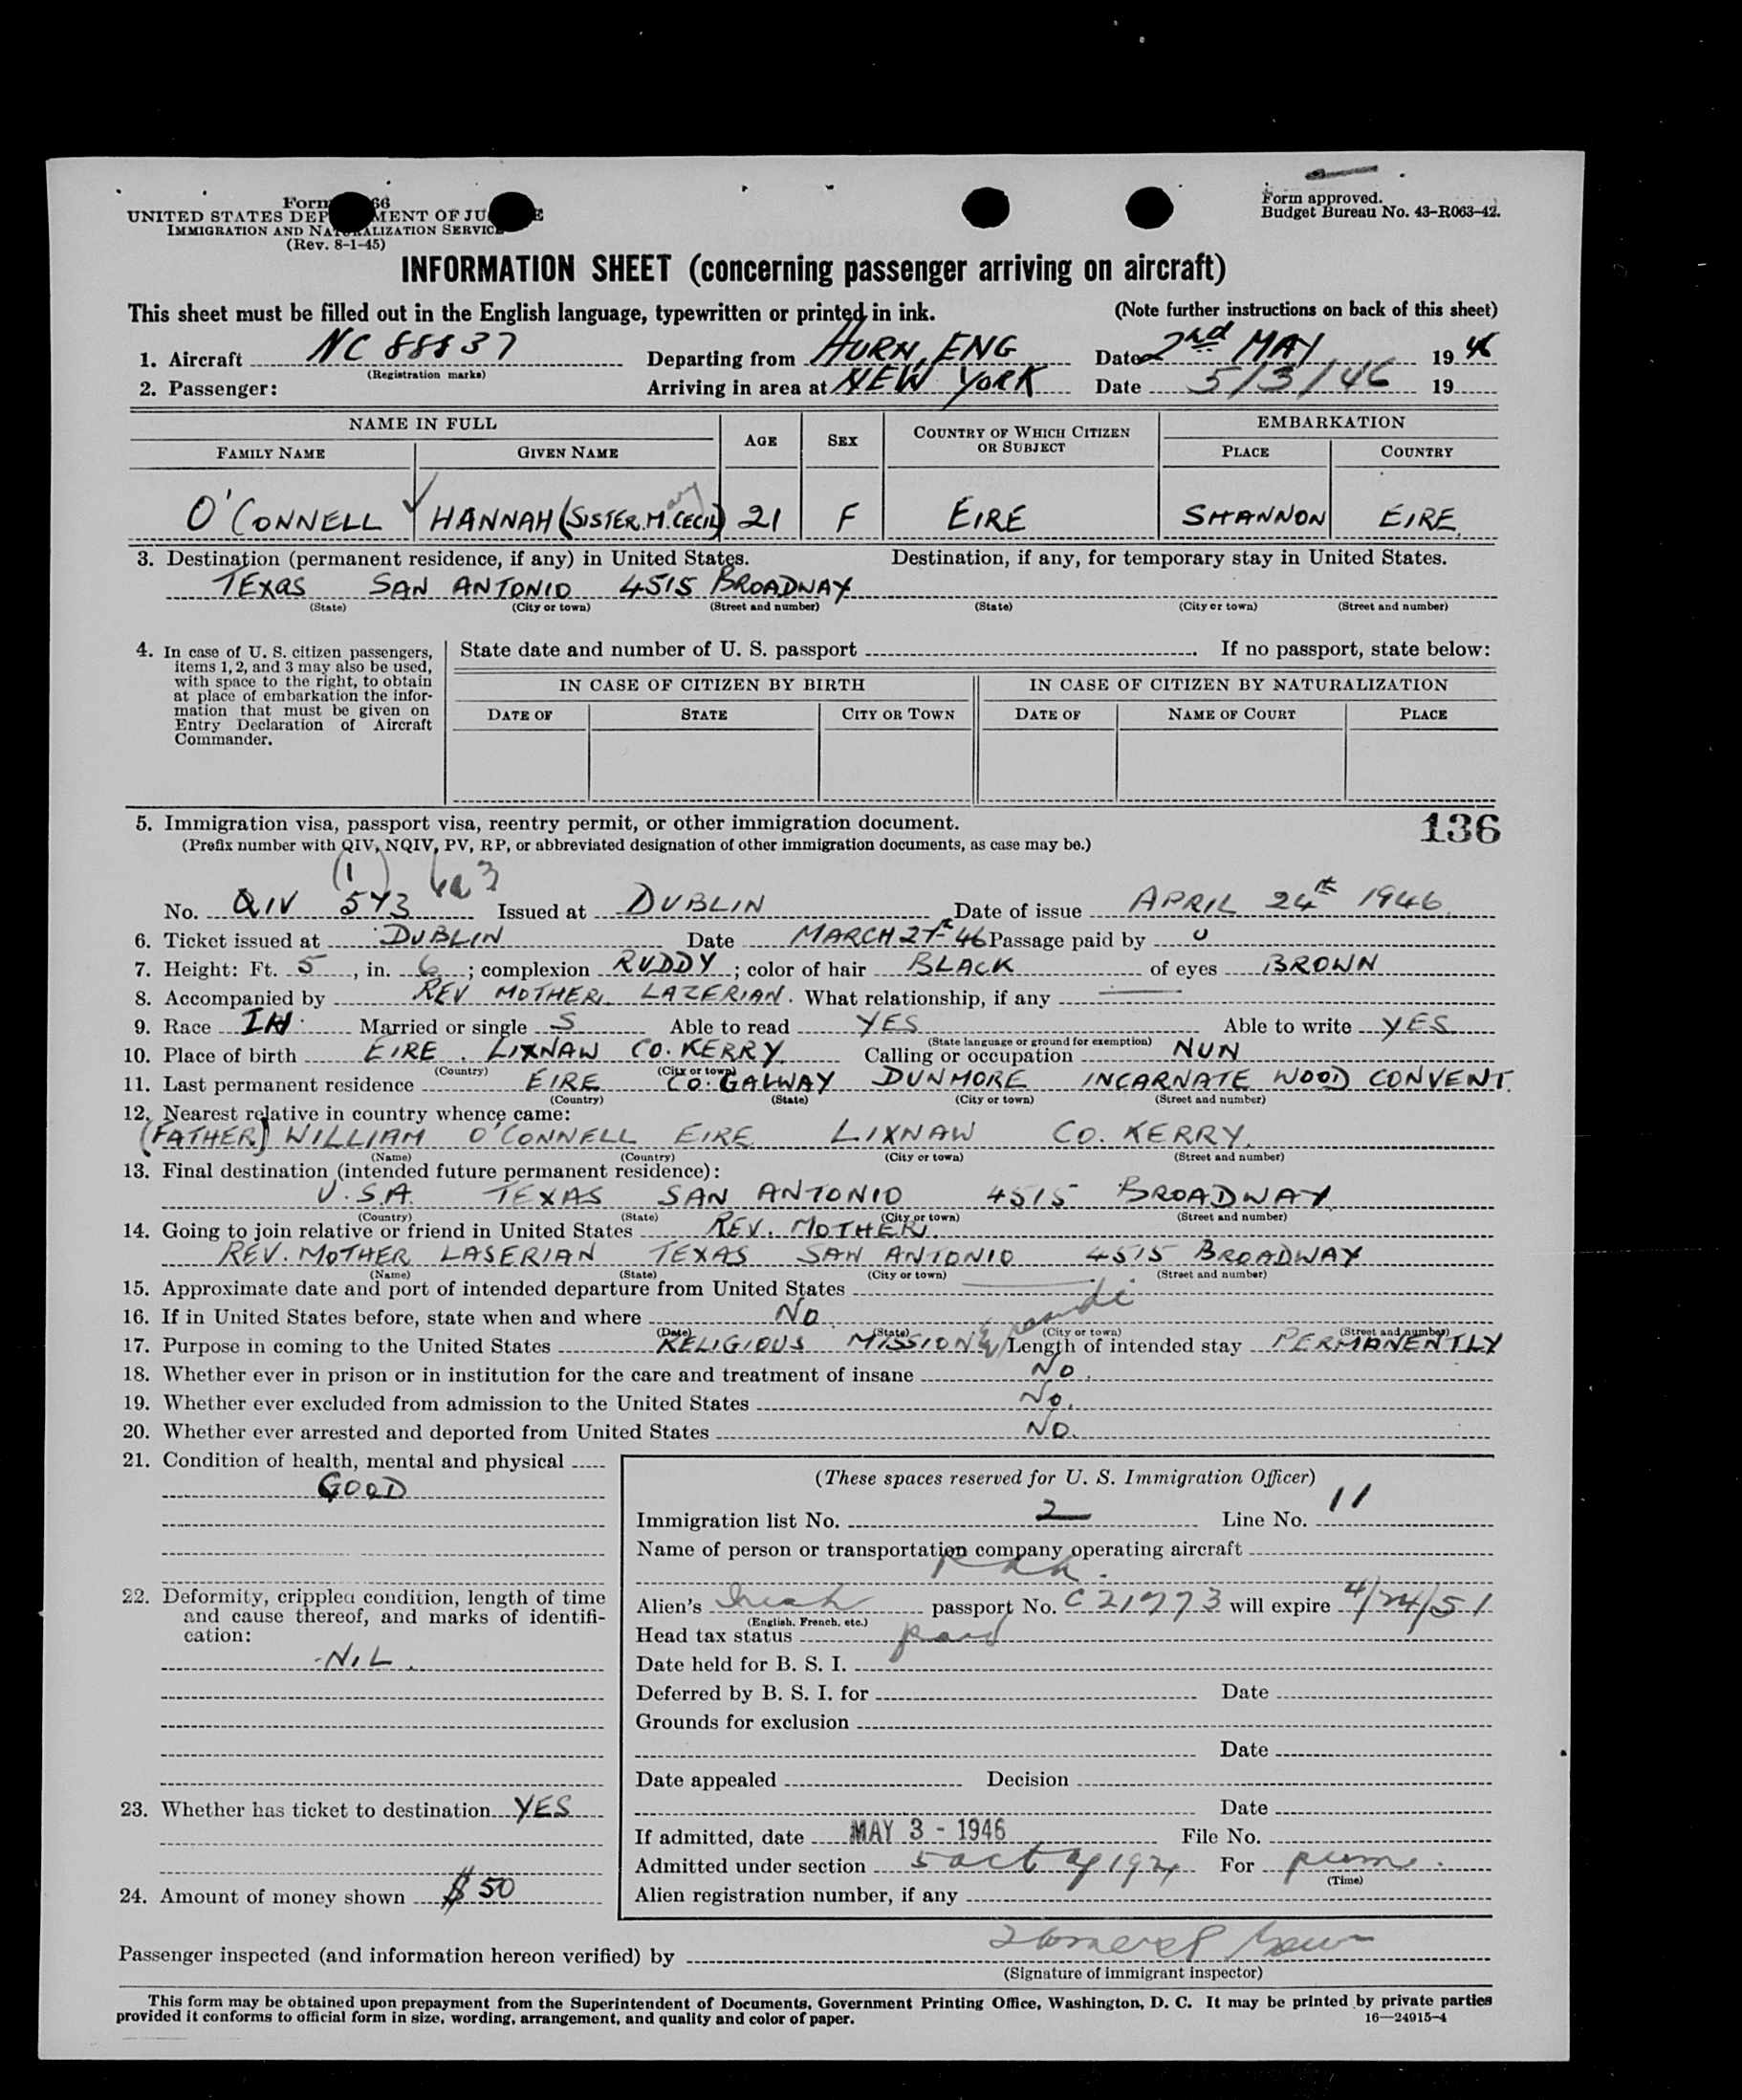 Form 66
UNITED STATES DEPARTMENT OF JUSTICE
IMMIGRATION AND NATURALIZATION SERVICE
(Rev. 8-1-45)
Form approved.
Budget Bureau No. 43-R063-42.
INFORMATION SHEET (concerning passenger arriving on aircraft)
This sheet must be filled out in the English language, typewritten or printed in ink. (Note further instructions on back of this sheet)
1. Aircraft NC 88837 Departing from HURN, ENG Date 2nd MAY 1946
(Registration marks)
2. Passenger: Arriving in area at NEW YORK Date 5/3/46 19
NAME IN FULL AGE SEX COUNTRY OF WHICH CITIZEN OR SUBJECT EMBARKATION
FAMILY NAME GIVEN NAME PLACE COUNTRY
O'CONNELL HANNAH (SISTER. M. CECIL) 21 F EIRE SHANNON EIRE.
3. Destination (permanent residence, if any) in United States. Destination, if any, for temporary stay in United States.
TEXAS SAN ANTONIO 4515 BROADWAY
(State) (City or town) (Street and number) (State) (City or town) (Street and number)
4. In case of U. S. citizen passengers, items 1, 2, and 3 may also be used, with space to the right, to obtain at place of embarkation the information that must be given on Entry Declaration of Aircraft Commander.
State date and number of U. S. passport . If no passport, state below:
IN CASE OF CITIZEN BY BIRTH IN CASE OF CITIZEN BY NATURALIZATION
DATE OF STATE CITY OR TOWN DATE OF NAME OF COURT PLACE
5. Immigration visa, passport visa, reentry permit, or other immigration document. 136
(Prefix number with QIV, NQIV, PV, RP, or abbreviated designation of other immigration documents, as case may be.)
(1) 4a3
No. QIV 543 Issued at DUBLIN Date of issue APRIL 24th 1946.
6. Ticket issued at DUBLIN Date MARCH 27th 46 Passage paid by U
7. Height: Ft. 5, in. 6; complexion RUDDY; color of hair BLACK of eyes BROWN
8. Accompanied by REV MOTHER LAZERIAN. What relationship, if any —
9. Race IH. Married or single S Able to read YES Able to write YES
(State language or ground for exemption)
10. Place of birth EIRE. LIXNAW CO. KERRY. Calling or occupation NUN
(Country) (City or town)
11. Last permanent residence EIRE CO. GALWAY DUNMORE INCARNATE WOOD CONVENT.
(Country) (State) (City or town) (Street and number)
12. Nearest relative in country whence came:
(FATHER) WILLIAM O'CONNELL EIRE LIXNAW CO. KERRY.
(Name) (Country) (City or town) (Street and number)
13. Final destination (intended future permanent residence):
U.S.A. TEXAS SAN ANTONIO 4515 BROADWAY.
(Country) (State) (City or town) (Street and number)
14. Going to join relative or friend in United States REV. MOTHER.
REV. MOTHER LASERIAN TEXAS SAN ANTONIO 4515 BROADWAY
(Name) (State) (City or town) (Street and number)
15. Approximate date and port of intended departure from United States —
16. If in United States before, state when and where NO
(Date) (State) (City or town) (Street and number)
17. Purpose in coming to the United States RELIGIOUS MISSION & Length of intended stay PERMANENTLY
18. Whether ever in prison or in institution for the care and treatment of insane NO.
19. Whether ever excluded from admission to the United States NO.
20. Whether ever arrested and deported from United States NO.
21. Condition of health, mental and physical
GOOD
22. Deformity, crippled condition, length of time and cause thereof, and marks of identification:
NIL.
23. Whether has ticket to destination YES
24. Amount of money shown $50
(These spaces reserved for U. S. Immigration Officer)
Immigration list No. 2 Line No. 11
Name of person or transportation company operating aircraft
Alien's Irish passport No. C 21773 will expire 4/24/51
(English, French, etc.)
Head tax status paid
Date held for B. S. I.
Deferred by B. S. I. for Date
Grounds for exclusion
Date
Date appealed Decision
Date
If admitted, date MAY 3 - 1946 File No.
Admitted under section 5 act of 1924 For perm.
(Time)
Alien registration number, if any
Passenger inspected (and information hereon verified) by
(Signature of immigrant inspector)
This form may be obtained upon prepayment from the Superintendent of Documents, Government Printing Office, Washington, D. C. It may be printed by private parties
provided it conforms to official form in size, wording, arrangement, and quality and color of paper. 16—24915-4